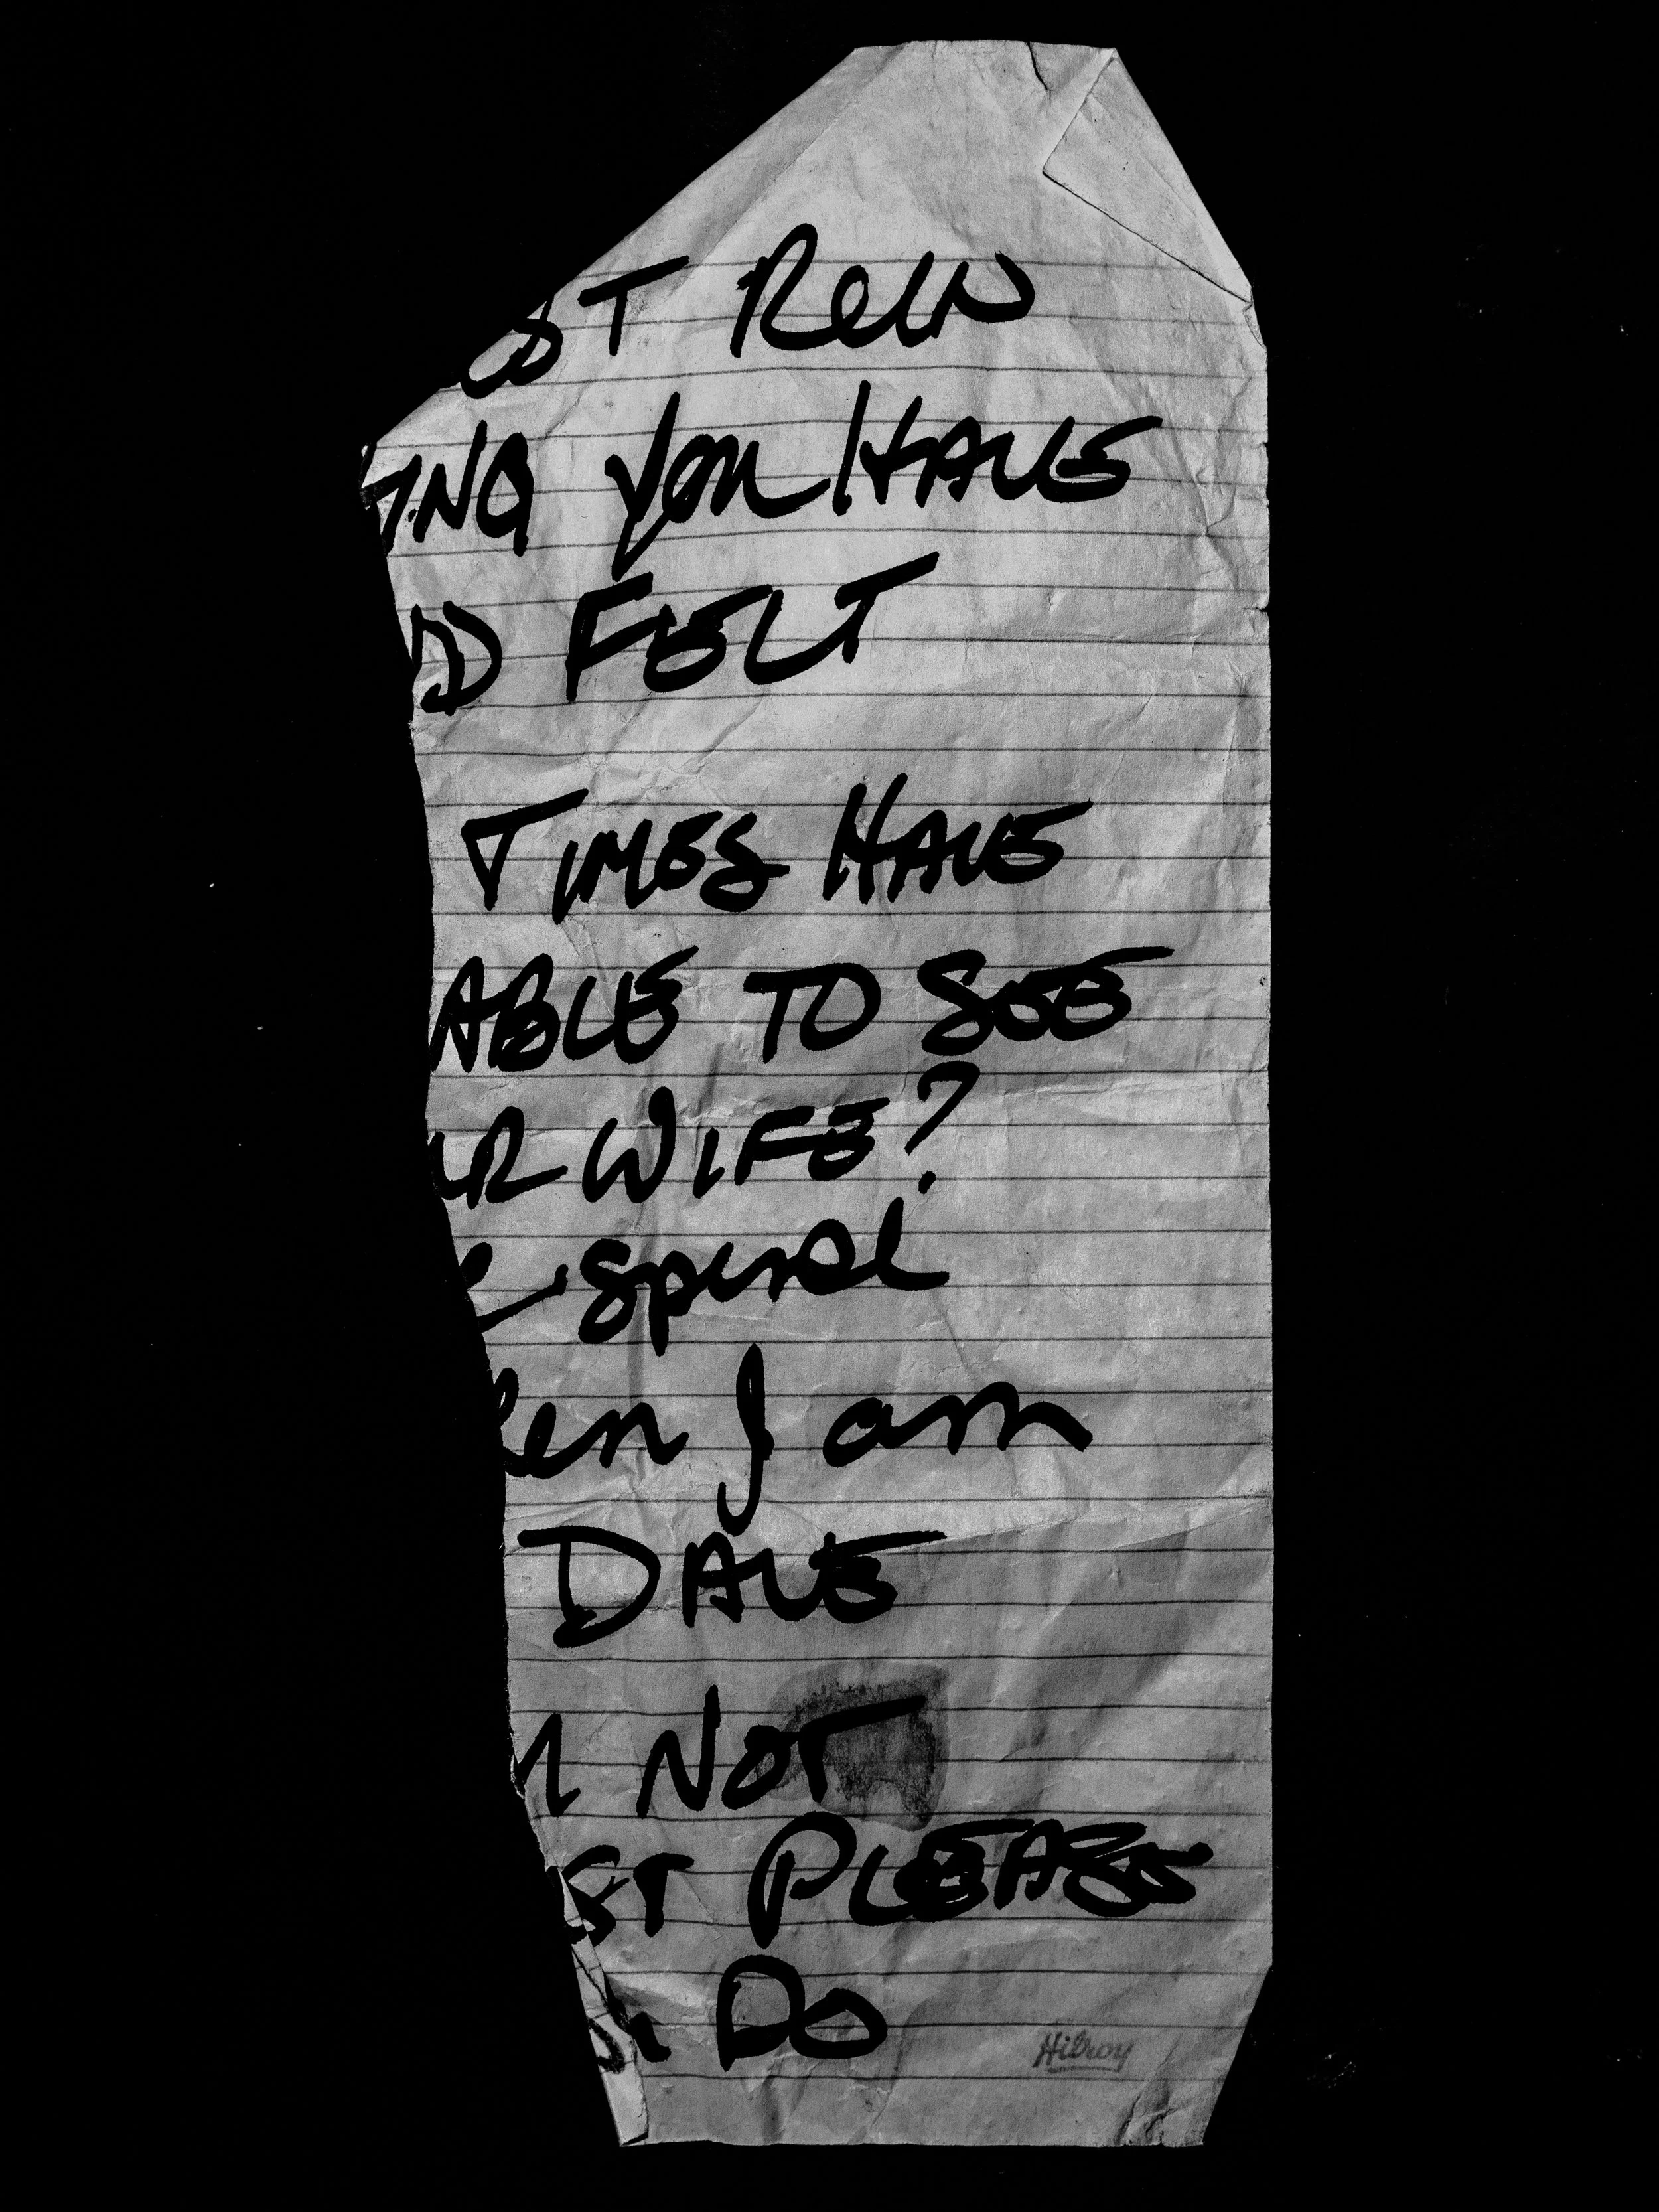 ST
ING YOU HAVE
D FELT
TIMES HAVE
ABLE TO SEE
UR WIFE?
spinal
en I am
DAVE
NOT
ST PLEASE
DO
Hilroy